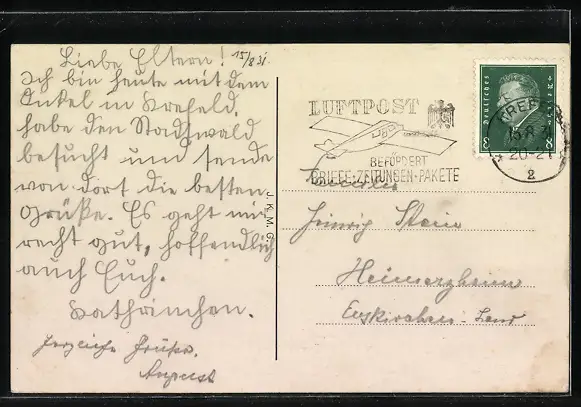 Liebe Eltern! 15/8 31.
Ich bin heute mit dem
Onkel in Krefeld,
habe den Stadtwald
besucht und sende
von dort die besten
Grüße. Es geht mir
recht gut, hoffendlich
auch Euch.
Kathrinchen.
Herzliche Grüße.
August
J. K. M. G.
LUFTPOST
BEFÖRDERT
BRIEFE·ZEITUNGEN·PAKETE
Deutsches Reich
8 8
KREFELD
15.8.31
20-21
2
Familie
Heinrich Stein
Heimerzheim
Euskirchen-Land